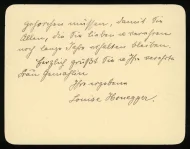 gehorchen müssen, damit Sie
Allen, die Sie lieben u verehren
noch lange Jahre erhalten bleiben.
Herzlich grüßt Sie u Ihre verehrte
Frau Gemahlin
Ihre ergebene
Louise Honegger.